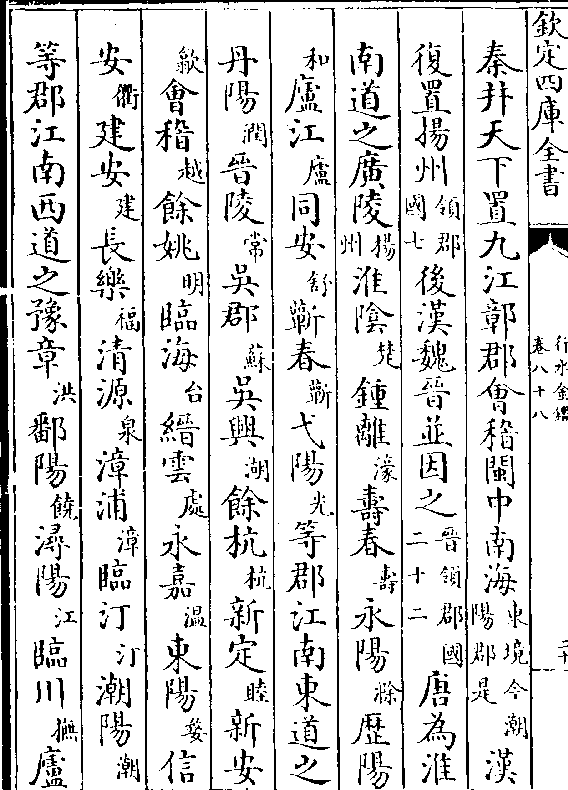 欽定四庫全書
行水金鑑
卷八十八
秦并天下置九江鄣郡會稽閩中南海東境今潮陽郡是漢
復置揚州領郡國七後漢魏晉並因之晉領郡國二十二唐為淮
南道之廣陵揚州淮陰楚鍾離濠壽春壽永陽滁歴陽
和廬江廬同安舒蘄春蘄弋陽光等郡江南東道之
丹陽潤晉陵常吳郡蘇吳興湖餘杭杭新定睦新安
歙會稽越餘姚明臨海台縉雲處永嘉温東陽婺信
安衢建安建長樂福清源泉漳浦漳臨汀汀潮陽潮
等郡江南西道之豫章洪鄱陽饒潯陽江臨川撫廬